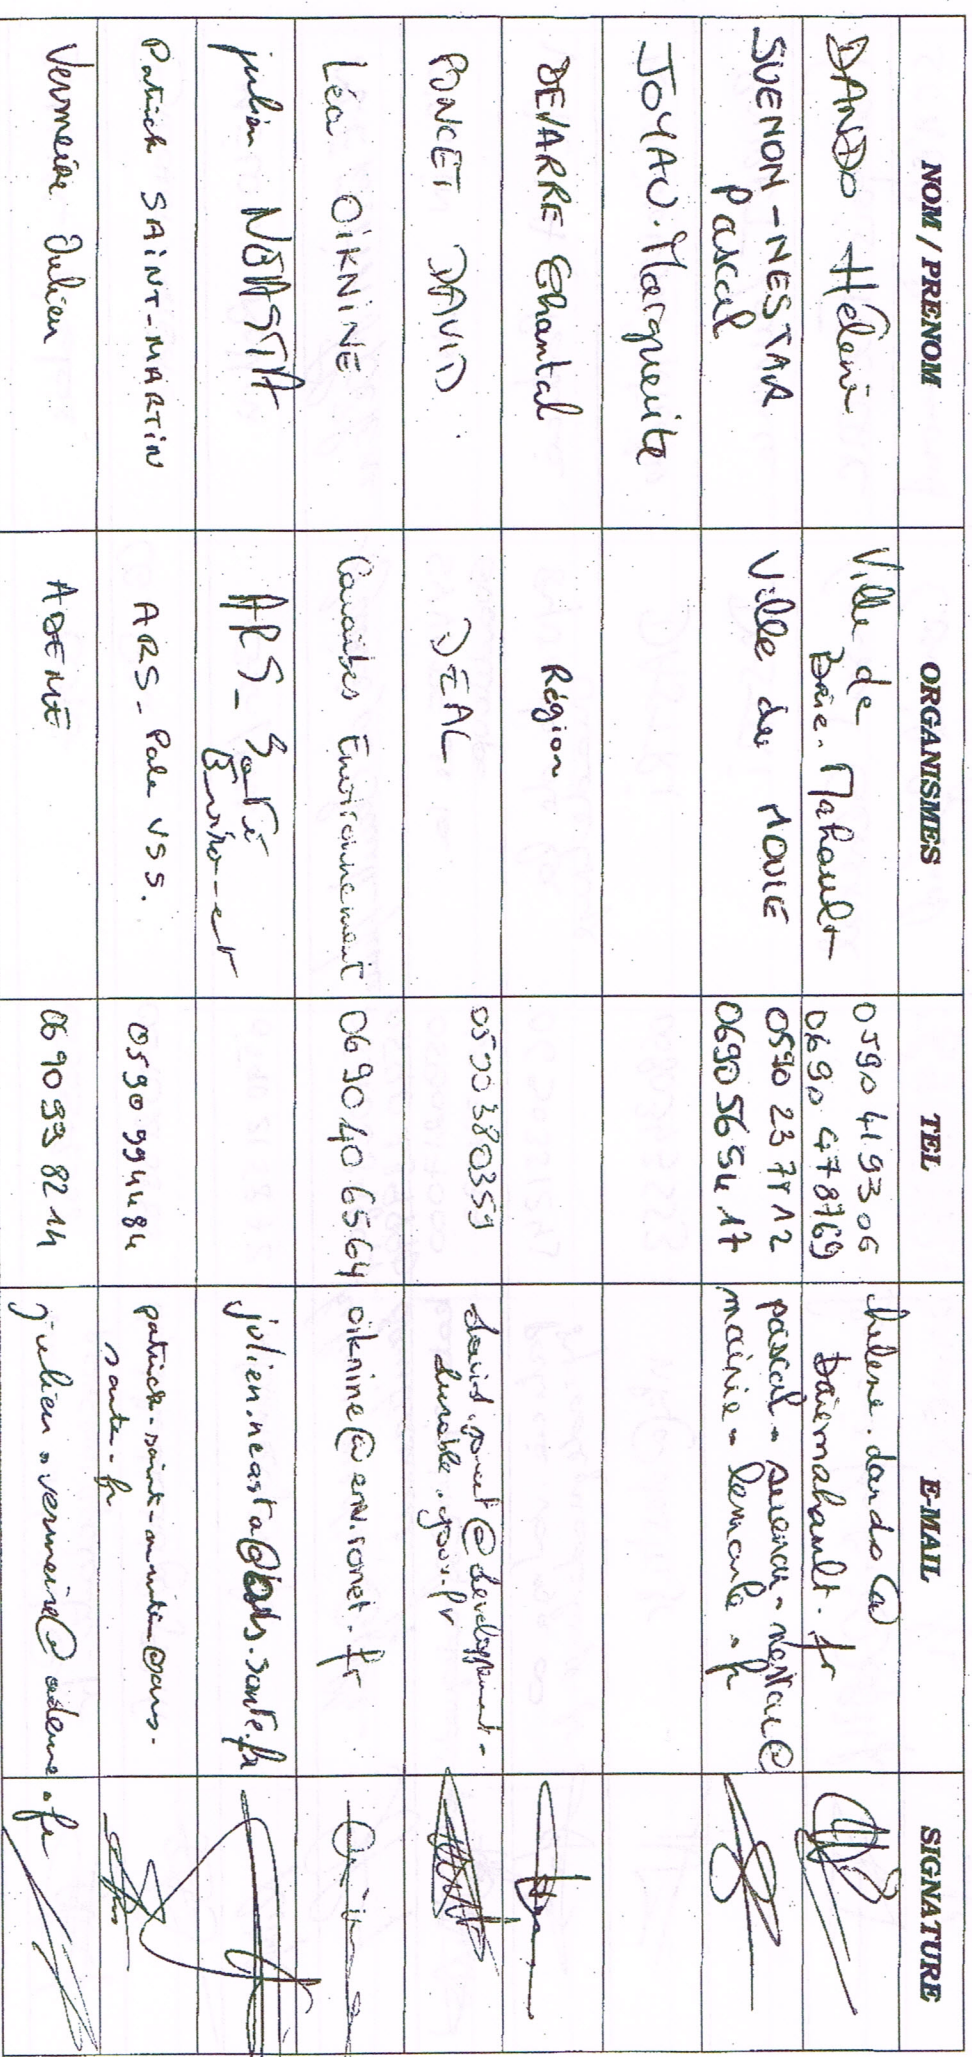 NOM / PRENOM ORGANISMES TEL E-MAIL SIGNATURE
DANDO Hélène Ville de Baie-Mahault 0590 419306 helene.dando@
0690 478769 baiemahault.fr
SUENON-NESTAR Ville du MOULE 0590 23 7812 pascal-suenon-nestar@
Pascal 0690 56 54 17 mairie-lemoule.fr
JOYAU Marguerite
DEVARRE Chantal Région
PONCET DAVID DEAL 0590380359 david.poncet@developpement-
durable.gouv.fr
Léa OIKNINE Caraïbes Environnement 0690 40 65 64 oiknine@env.ronet.fr
julien NEASTA ARS_ Santé julien.neasta@ars.sante.fr
Patrick SAINT-MARTIN ARS_ Pole VSS. 0590 994484 patrick.saint-martin@ars.
sante.fr
Vermeire Julien ADEME 0690 99 82 14 julien.vermeire@ademe.fr